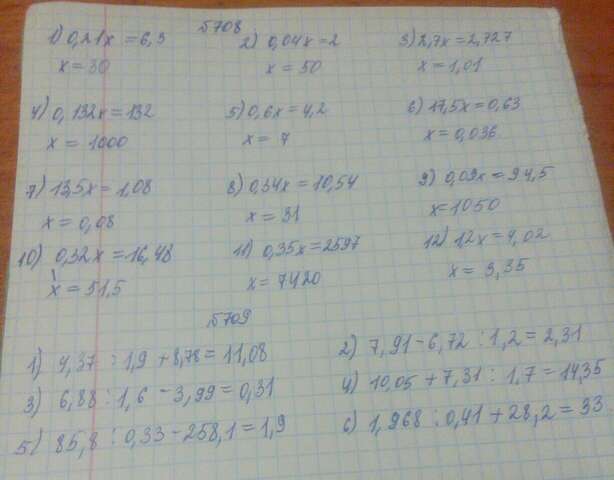 №708
1) 0,21x = 6,3 2) 0,04x = 2 3) 2,7x = 2,727
x = 30 x = 50 x = 1,01
4) 0,132x = 132 5) 0,6x = 4,2 6) 17,5x = 0,63
x = 1000 x = 7 x = 0,036
7) 13,5x = 1,08 8) 0,34x = 10,54 9) 0,09x = 94,5
x = 0,08 x = 31 x = 1050
10) 0,32x = 16,48 11) 0,35x = 2597 12) 12x = 4,02
x = 51,5 x = 7420 x = 3,35
№709
1) 4,37 : 1,9 + 8,78 = 11,08 2) 7,91 - 6,72 : 1,2 = 2,31
3) 6,88 : 1,6 - 3,99 = 0,31 4) 10,05 + 7,31 : 1,7 = 14,35
5) 85,8 : 0,33 - 258,1 = 1,9 6) 1,968 : 0,41 + 28,2 = 33